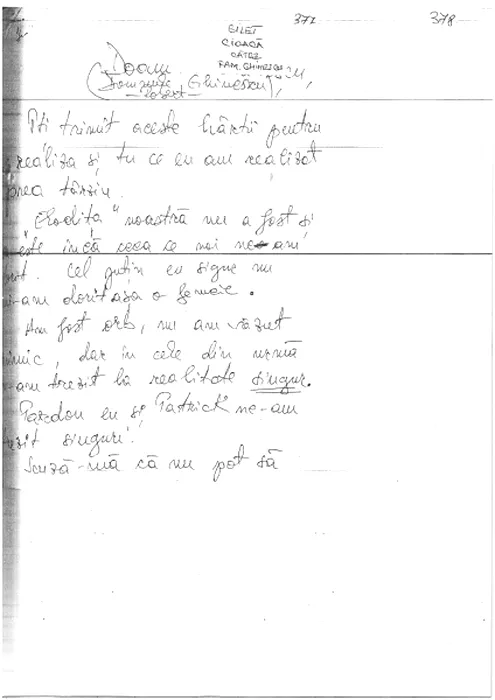 371 378
BILET
CIOACĂ
CĂTRE
FAM. GHINESCU
Doamn
(Domnule Ghinescu),
Robert
Îți trimit aceste hârtii pentru
realiza și tu ce eu am realizat
prea târziu.
"Elodița" noastră nu a fost și
este încă ceea ce noi ne-am
Cel puțin eu sigur nu
mi-am dorit așa o femeie.
Am fost orb, nu am văzut
nimic, dar în cele din urmă
m-am trezit la realitate singur.
Pardon eu și Patrick ne-am
trezit singuri.
Scuză-mă că nu pot să